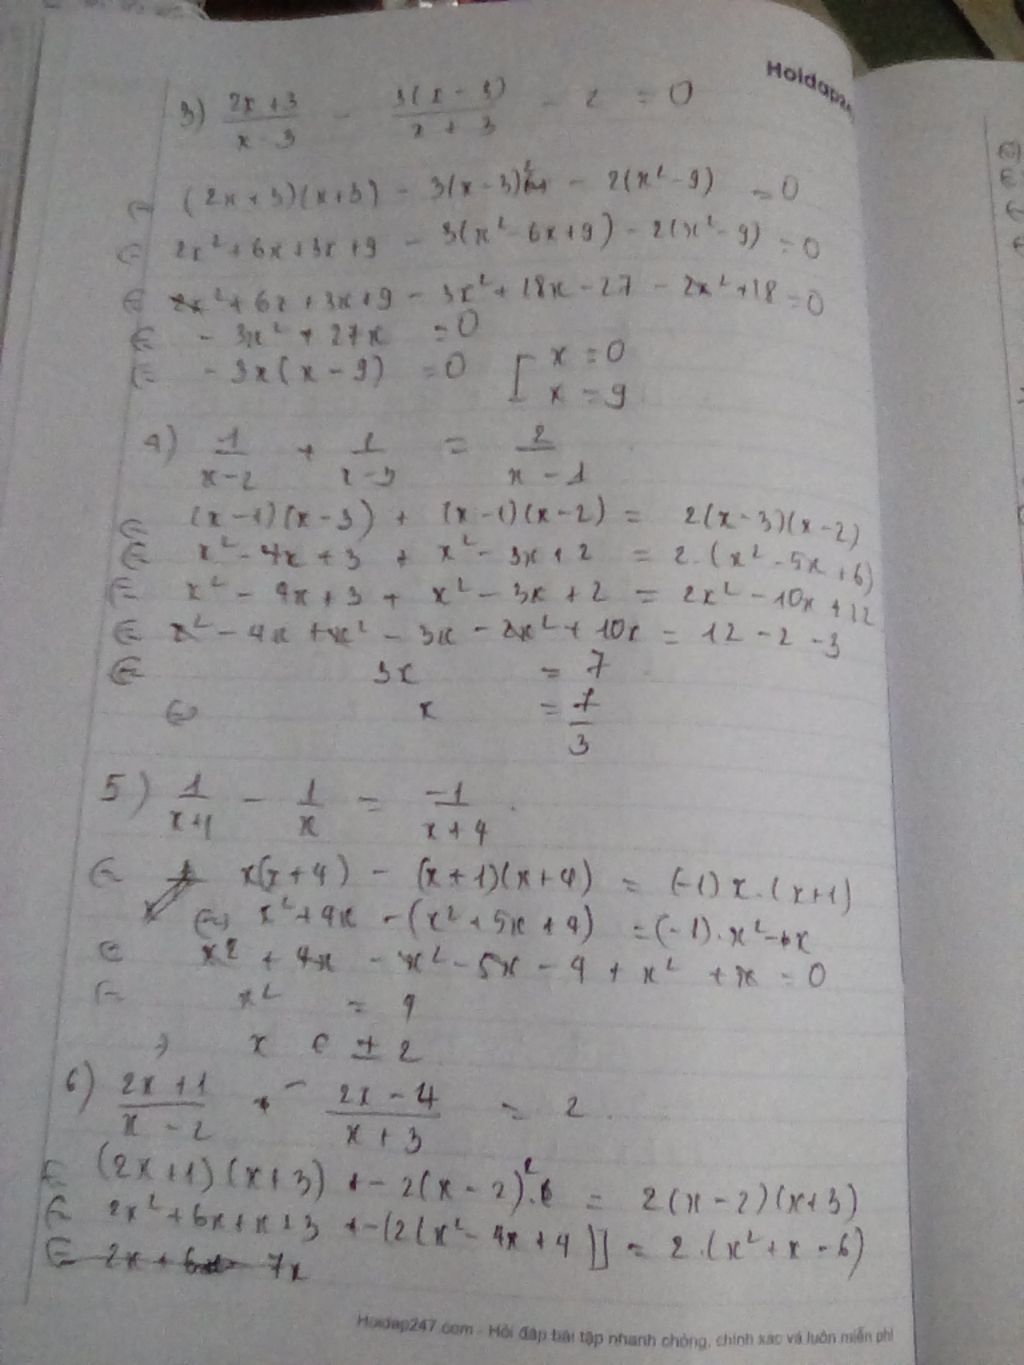 Hoidap24
3) (2x+3)/(x-3) - 3(x-3)/(x+3) - 2 = 0
⇔ (2x+3)(x+3) - 3(x-3)² - 2(x²-9) = 0
⇔ 2x²+6x+3x+9 - 3(x²-6x+9) - 2(x²-9) = 0
⇔ 2x²+6x+3x+9 - 3x²+18x-27 - 2x²+18=0
⇔ -3x²+27x = 0
⇔ -3x(x-9) = 0 [ x=0
x=9
4) 1/(x-2) + 1/(x-3) = 2/(x-1)
⇔ (x-1)(x-3) + (x-1)(x-2) = 2(x-3)(x-2)
⇔ x²-4x+3 + x²-3x+2 = 2.(x²-5x+6)
⇔ x²-4x+3 + x²-3x+2 = 2x²-10x+12
⇔ x²-4x+x²-3x-2x²+10x = 12-2-3
⇔ 3x = 7
⇔ x = 7/3
5) 1/(x+1) - 1/x = -1/(x+4)
⇔ x(x+4) - (x+1)(x+4) = (-1)x.(x+1)
⇔ x²+4x - (x²+5x+4) = (-1).x²-x
⇔ x²+4x - x²-5x-4 + x² + x = 0
⇔ x² = 4
x = ±2
6) (2x+1)/(x-2) - (2x-4)/(x+3) = 2
⇔ (2x+1)(x+3) - 2(x-2)² = 2(x-2)(x+3)
⇔ 2x²+6x+x+3 - [2(x²-4x+4)] = 2.(x²+x-6)
⇔ 7x
Hoidap247.com - Hỏi đáp bài tập nhanh chóng, chính xác và luôn miễn phí